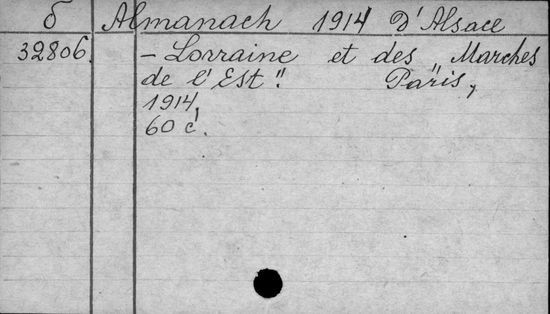 б Almanach 1914 D'Alsace
32806. – Lorraine et des „Marches
de l'Est". Paris,
1914.
60 c.